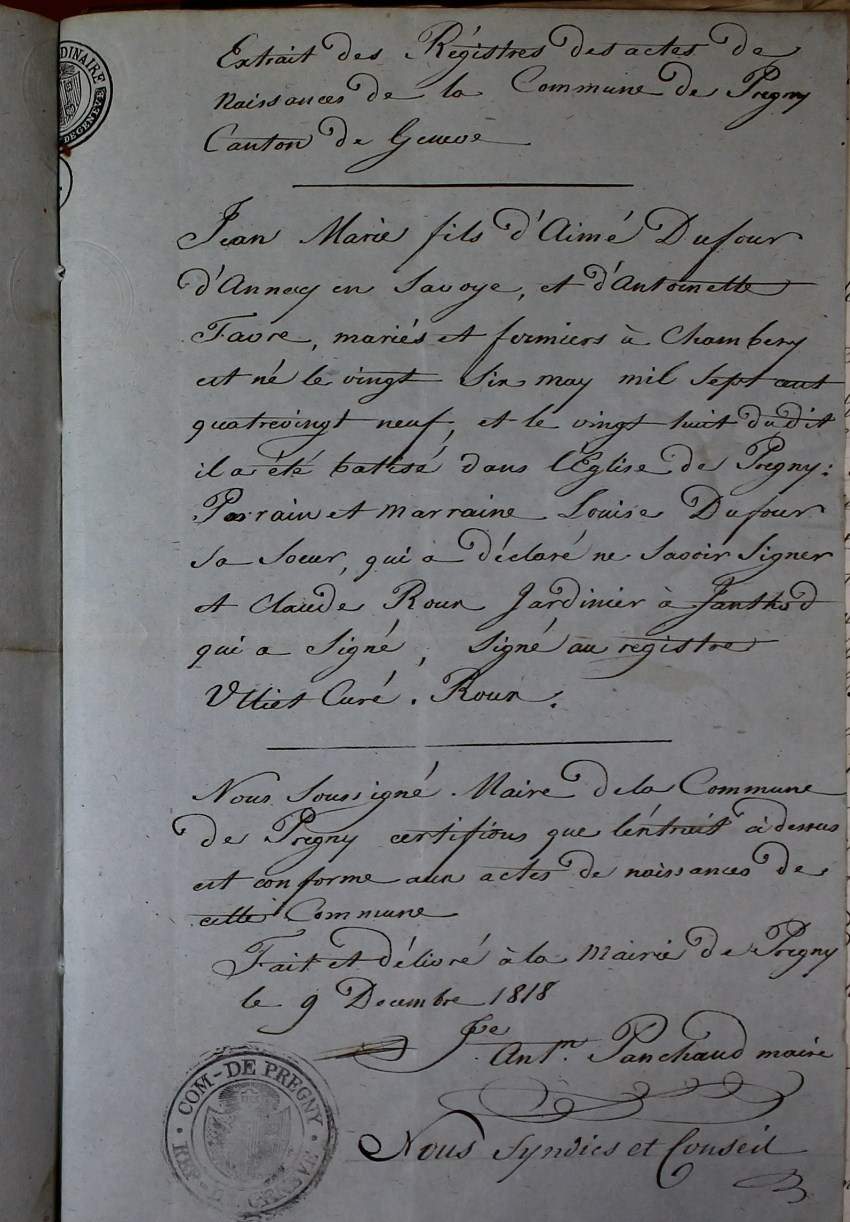 DINAIRE
DE GENEVE
Extrait des Régistres des actes de
Naissances de la Commune de Pregny
Canton de Geneve
Jean Marie fils d'Aimé Dufour
d'Annecy en Savoye, et d'Antoinette
Favre, mariés et fermiers à Chambery
est né le vingt Six may mil Sept cent
quatrevingt neuf, et le vingt huit dudit
il a été batisé dans l'Eglise de Pregny:
Parrain et Marraine Louise Dufour
sa Soeur, qui a déclaré ne Savoir Signer
et Claude Roux Jardinier à Janthod
qui a Signé, Signé au registre
Curé. Roux.
Nous Soussigné Maire de la Commune
de Pregny certifions que l'éxtrait à dessus
est conforme aux actes de naissances de
cette Commune
Fait et délivré à la Mairie de Pregny
le 9 Decembre 1818
Ant.n Panchaud maire
COM-DE PREGNY
REP-DE GENEVE
Nous Syndics et Conseil